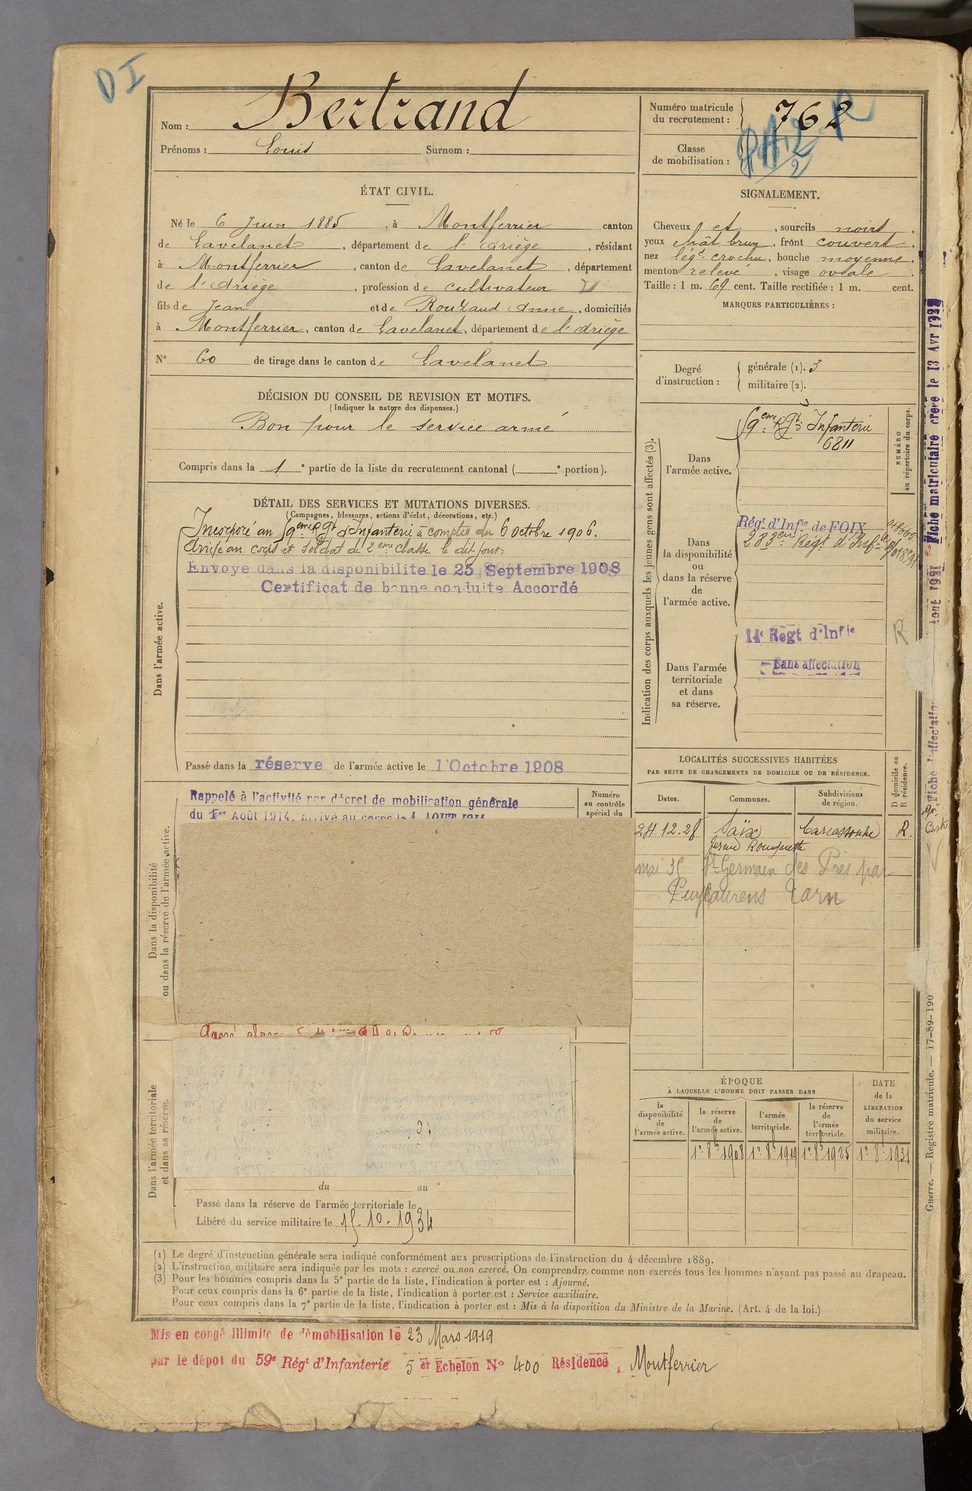 DI
Nom : Bertrand
Prénoms : Louis Surnom :
Numéro matricule du recrutement : 762
Classe de mobilisation :
ÉTAT CIVIL.
Né le 6 Juin 1885, à Montferrier canton
de Lavelanet, département de l'Ariège, résidant
à Montferrier, canton de Lavelanet, département
de l'Ariège, profession de cultivateur
fils de Jean et de Rouzaud Anne, domiciliés
à Montferrier, canton de Lavelanet, département de l'Ariège
N° 60 de tirage dans le canton de Lavelanet
DÉCISION DU CONSEIL DE REVISION ET MOTIFS.
(Indiquer la nature des dispenses.)
Bon pour le service armé
Compris dans la 1e partie de la liste du recrutement cantonal ( e portion).
DÉTAIL DES SERVICES ET MUTATIONS DIVERSES.
(Campagnes, blessures, actions d'éclat, décorations, etc.)
Incorporé au 9eme Rgt d'Infanterie à compter du 6 octobre 1906.
Arrivé au corps et soldat de 2eme classe le dit jour.
Envoye dans la disponibilite le 28 Septembre 1908
Certificat de bonne conduite Accordé
Dans l'armée active.
Passé dans la réserve de l'armée active le 1 Octobre 1908
Rappelé à l'activité par décret de mobilisation générale
du 1er Août 1914, arrivé au corps le 4 AOUT 1914
Numéro
au contrôle
spécial du
Dans la disponibilité
ou dans la réserve de l'armée active.
Dans l'armée territoriale
et dans sa réserve.
du au
Passé dans la réserve de l'armée territoriale le
Libéré du service militaire le 15.10.1934
SIGNALEMENT.
Cheveux et, sourcils noirs,
yeux chât brun, front couvert,
nez légt crochu, bouche moyenne,
menton relevé, visage ovale
Taille : 1 m. 69 cent. Taille rectifiée : 1 m. cent.
MARQUES PARTICULIÈRES :
Degré d'instruction :
générale (1). 3
militaire (2).
Indication des corps auxquels les jeunes gens sont affectés (3).
NUMÉRO
au répertoire du corps.
Dans
l'armée active.
9eme Rgt Infanterie
6811
Dans
la disponibilité
ou
dans la réserve
de
l'armée active.
Régt d'Infie de FOIX
283eme Régt d'Infie
Dans l'armée
territoriale
et dans
sa réserve.
14e Regt d'Infie
Sans affectation
R
LOCALITÉS SUCCESSIVES HABITÉES
PAR SUITE DE CHANGEMENTS DE DOMICILE OU DE RÉSIDENCE.
D domicile ou
R résidence.
Dates. Communes. Subdivisions de région.
24.12.28 Saïx Carcassonne R.
mai 35 St Germain des Près par
Puylaurens Tarn
ÉPOQUE
À LAQUELLE L'HOMME DOIT PASSER DANS
DATE
de la
LIBÉRATION
du service
militaire.
la disponibilité de l'armée active.
la réserve de l'armée active.
l'armée territoriale.
la réserve de l'armée territoriale.
1er 8bre 1908 1er 8bre 1919 1er 8bre 1925 1er 8bre 1934
Fiche matriculaire créée le 13 Avr 1927
Guerre. — Registre matricule. — 17-89-190
(1) Le degré d'instruction générale sera indiqué conformément aux prescriptions de l'instruction du 4 décembre 1889.
(2) L'instruction militaire sera indiquée par les mots : exercé ou non exercé. On comprendra comme non exercés tous les hommes n'ayant pas passé au drapeau.
(3) Pour les hommes compris dans la 5e partie de la liste, l'indication à porter est : Ajourné.
Pour ceux compris dans la 6e partie de la liste, l'indication à porter est : Service auxiliaire.
Pour ceux compris dans la 7e partie de la liste, l'indication à porter est : Mis à la disposition du Ministre de la Marine. (Art. 4 de la loi.)
Mis en congé illimité de démobilisation le 23 Mars 1919
par le dépot du 59e Régt d'Infanterie 5 er Echelon N° 400 Résidence, Montferrier